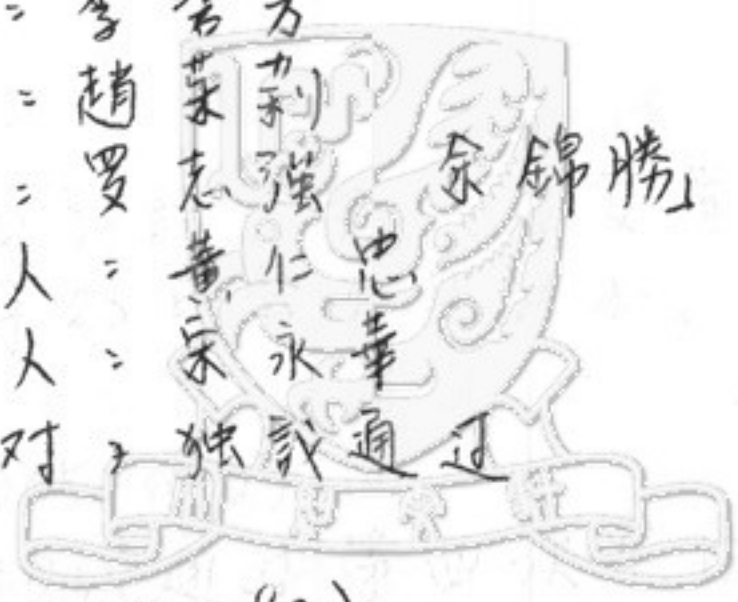 : 李 若 方
: 趙 茱 莉
: 罗 志 强 余 錦 勝」
人 : 黄 仁 忠
人 : 宋 永 華
对 : 独 議 通 过